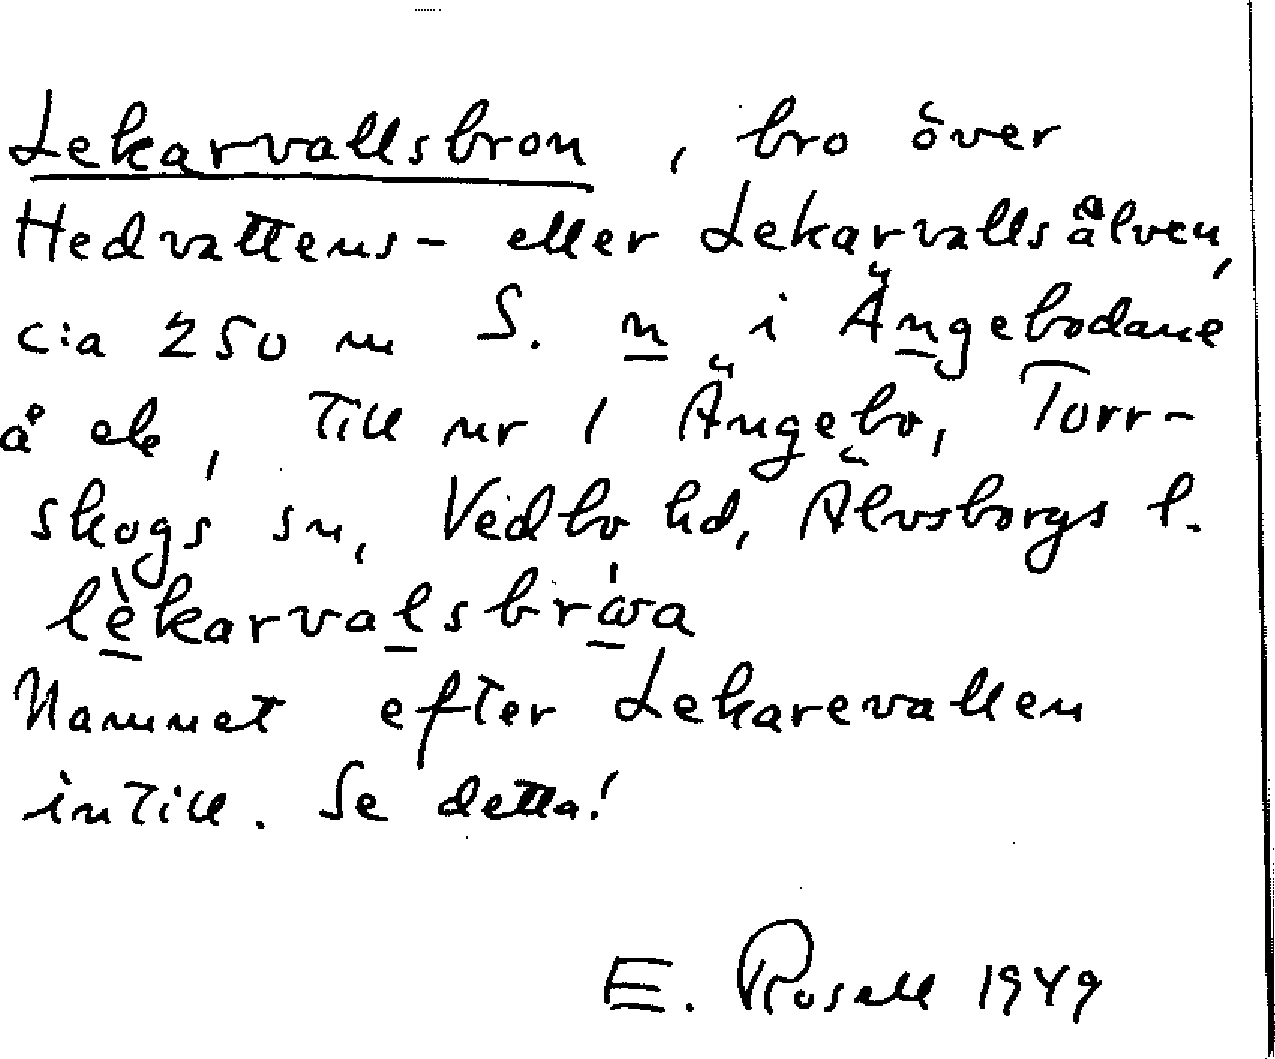 Lekarvallsbron, bro över
Hedvattens- eller Lekarvallsälven,
c:a 250 m S. n i Ängebodane
å ek, till nr 1 Ängebo, Torr-
skogs sn, Vedbo hd, Älvsborgs l.
lèkarvalsbrωa
Namnet efter Lekarevallen
intill. Se detta!
E. Rosell 1949